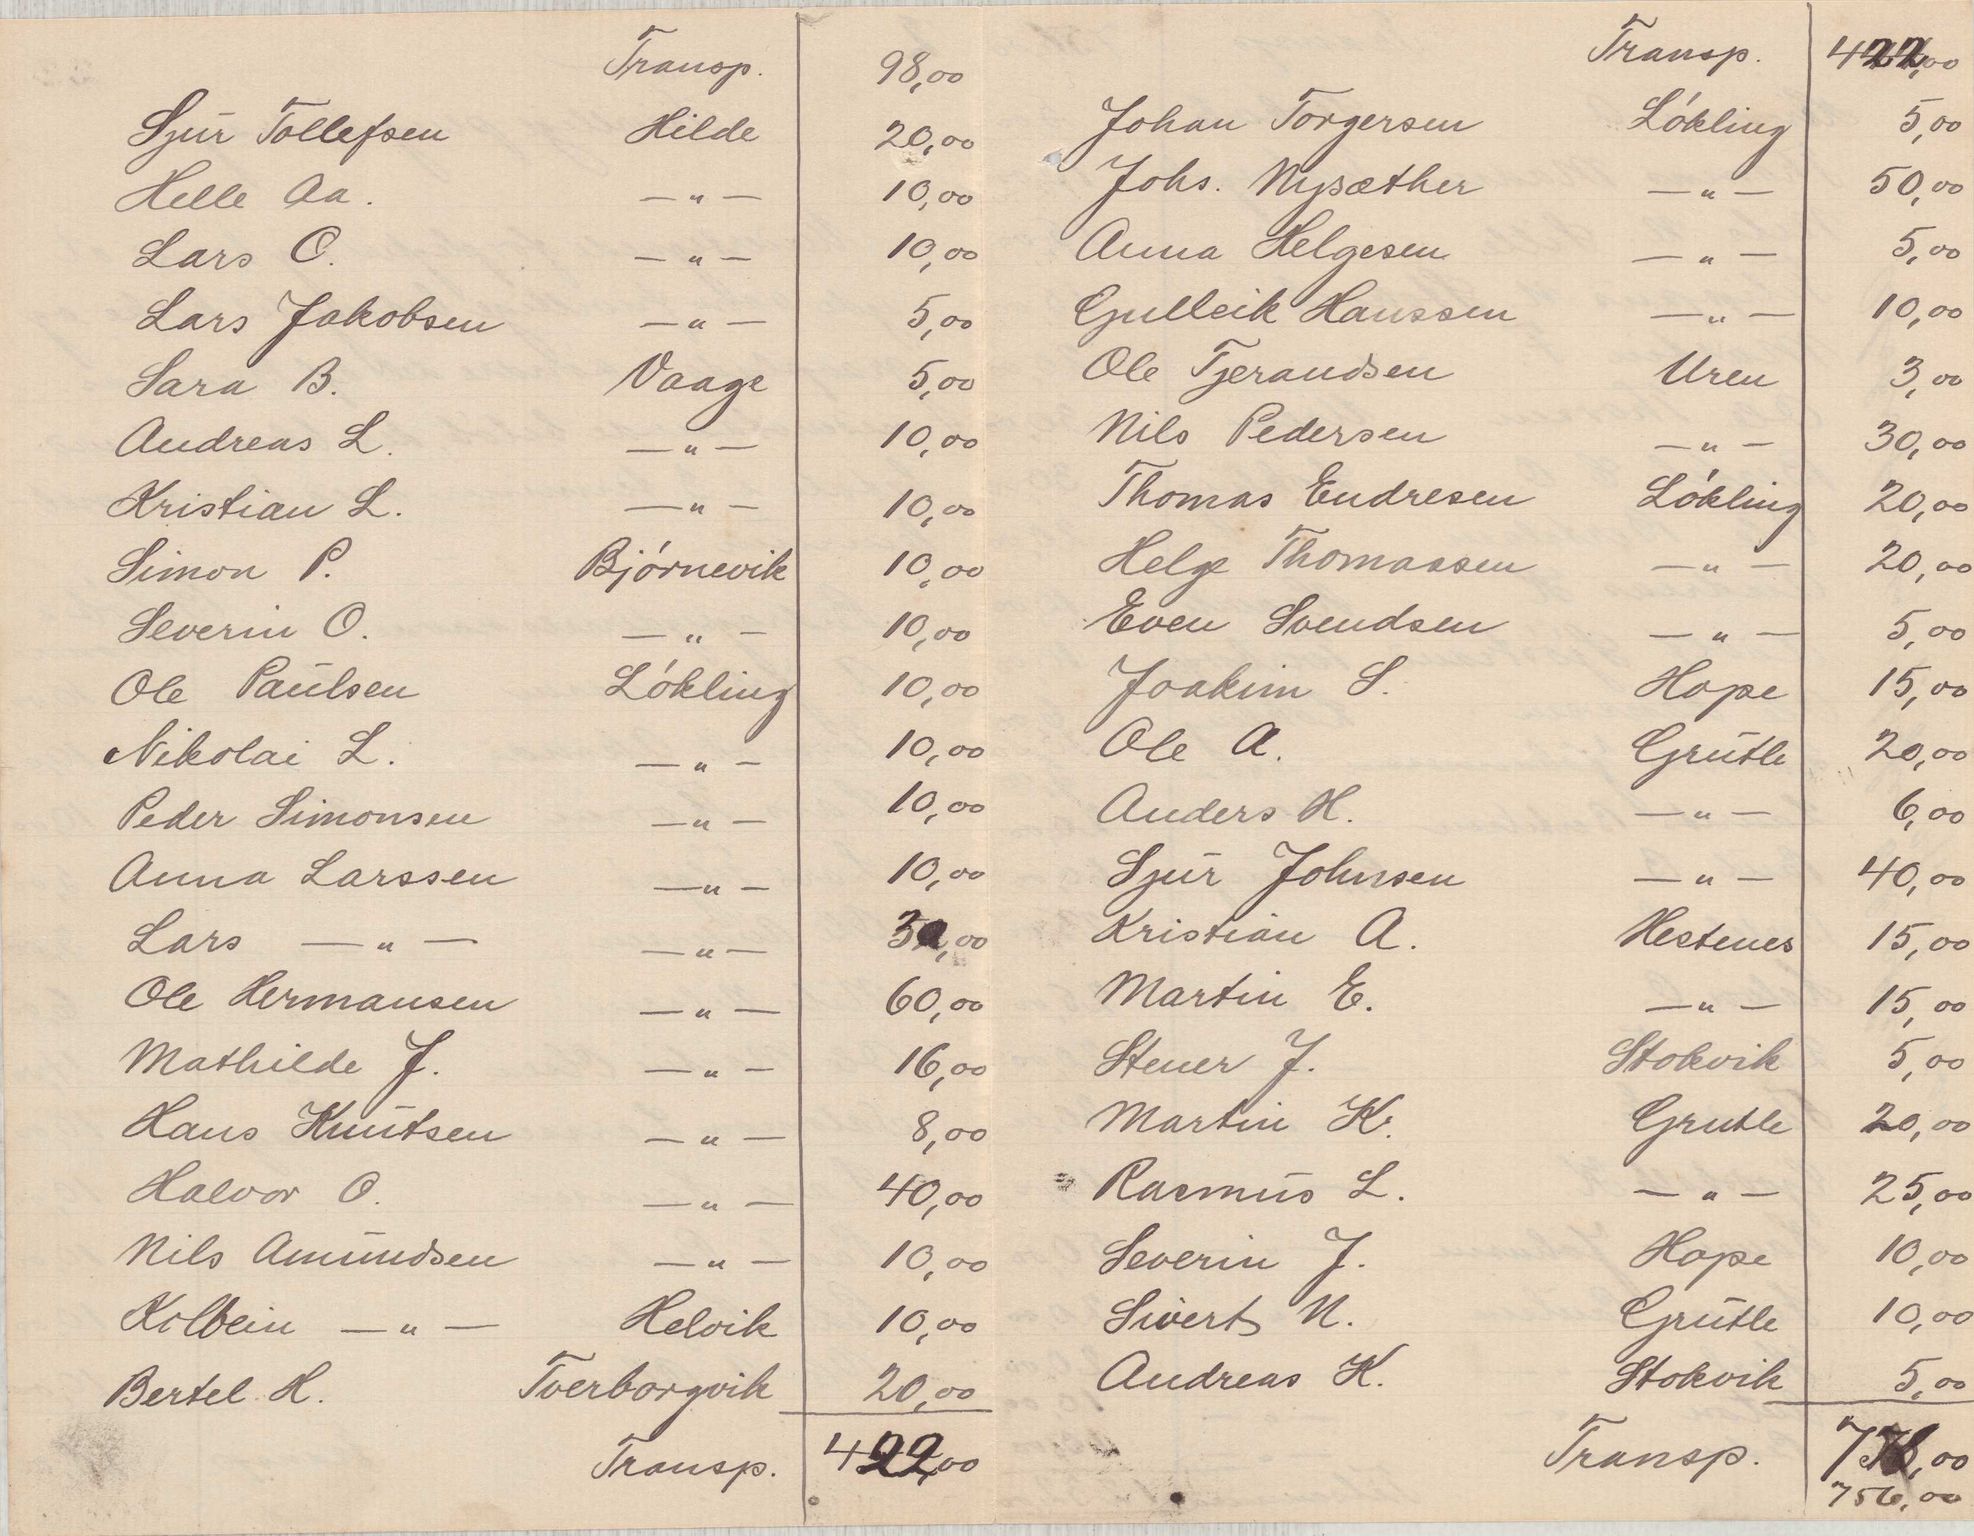 Transp. 98,00
Sjur Tollefsen Hilde 20,00
Helle Aa. —"— 10,00
Lars O. —"— 10,00
Lars Jakobsen —"— 5,00
Sara B. Vaage 5,00
Andreas L. —"— 10,00
Kristian L. —"— 10,00
Simon P. Bjørnevik 10,00
Severin O. —"— 10,00
Ole Paulsen Løkling 10,00
Nikolai L. —"— 10,00
Peder Simonsen —"— 10,00
Anna Larssen —"— 10,00
Lars —"— —"— 30,00
Ole Hermansen —"— 60,00
Mathilde J. —"— 16,00
Hans Knutsen —"— 8,00
Halvor O. —"— 40,00
Nils Amundsen —"— 10,00
Kolbein —"— Helvik 10,00
Bertel H. Tverborgvik 20,00
Transp. 422,00
Transp. 422,00
Johan Torgersen Løkling 5,00
Johs. Nysæther —"— 50,00
Anna Helgesen —"— 5,00
Gulleik Hanssen —"— 10,00
Ole Tjerandsen Uren 3,00
Nils Pedersen —"— 30,00
Thomas Endresen Løkling 20,00
Helge Thomassen —"— 20,00
Even Svendsen —"— 5,00
Joakim S. Hope 15,00
Ole A. Grutle 20,00
Anders H. —"— 6,00
Sjur Johnsen —"— 40,00
Kristian A. Hestenes 15,00
Martin E. —"— 15,00
Stener J. Stokvik 5,00
Martin K. Grutle 20,00
Rasmus L. —"— 25,00
Severin J. Hope 10,00
Sivert N. Grutle 10,00
Andreas K. Stokvik 5,00
Transp.
756,00